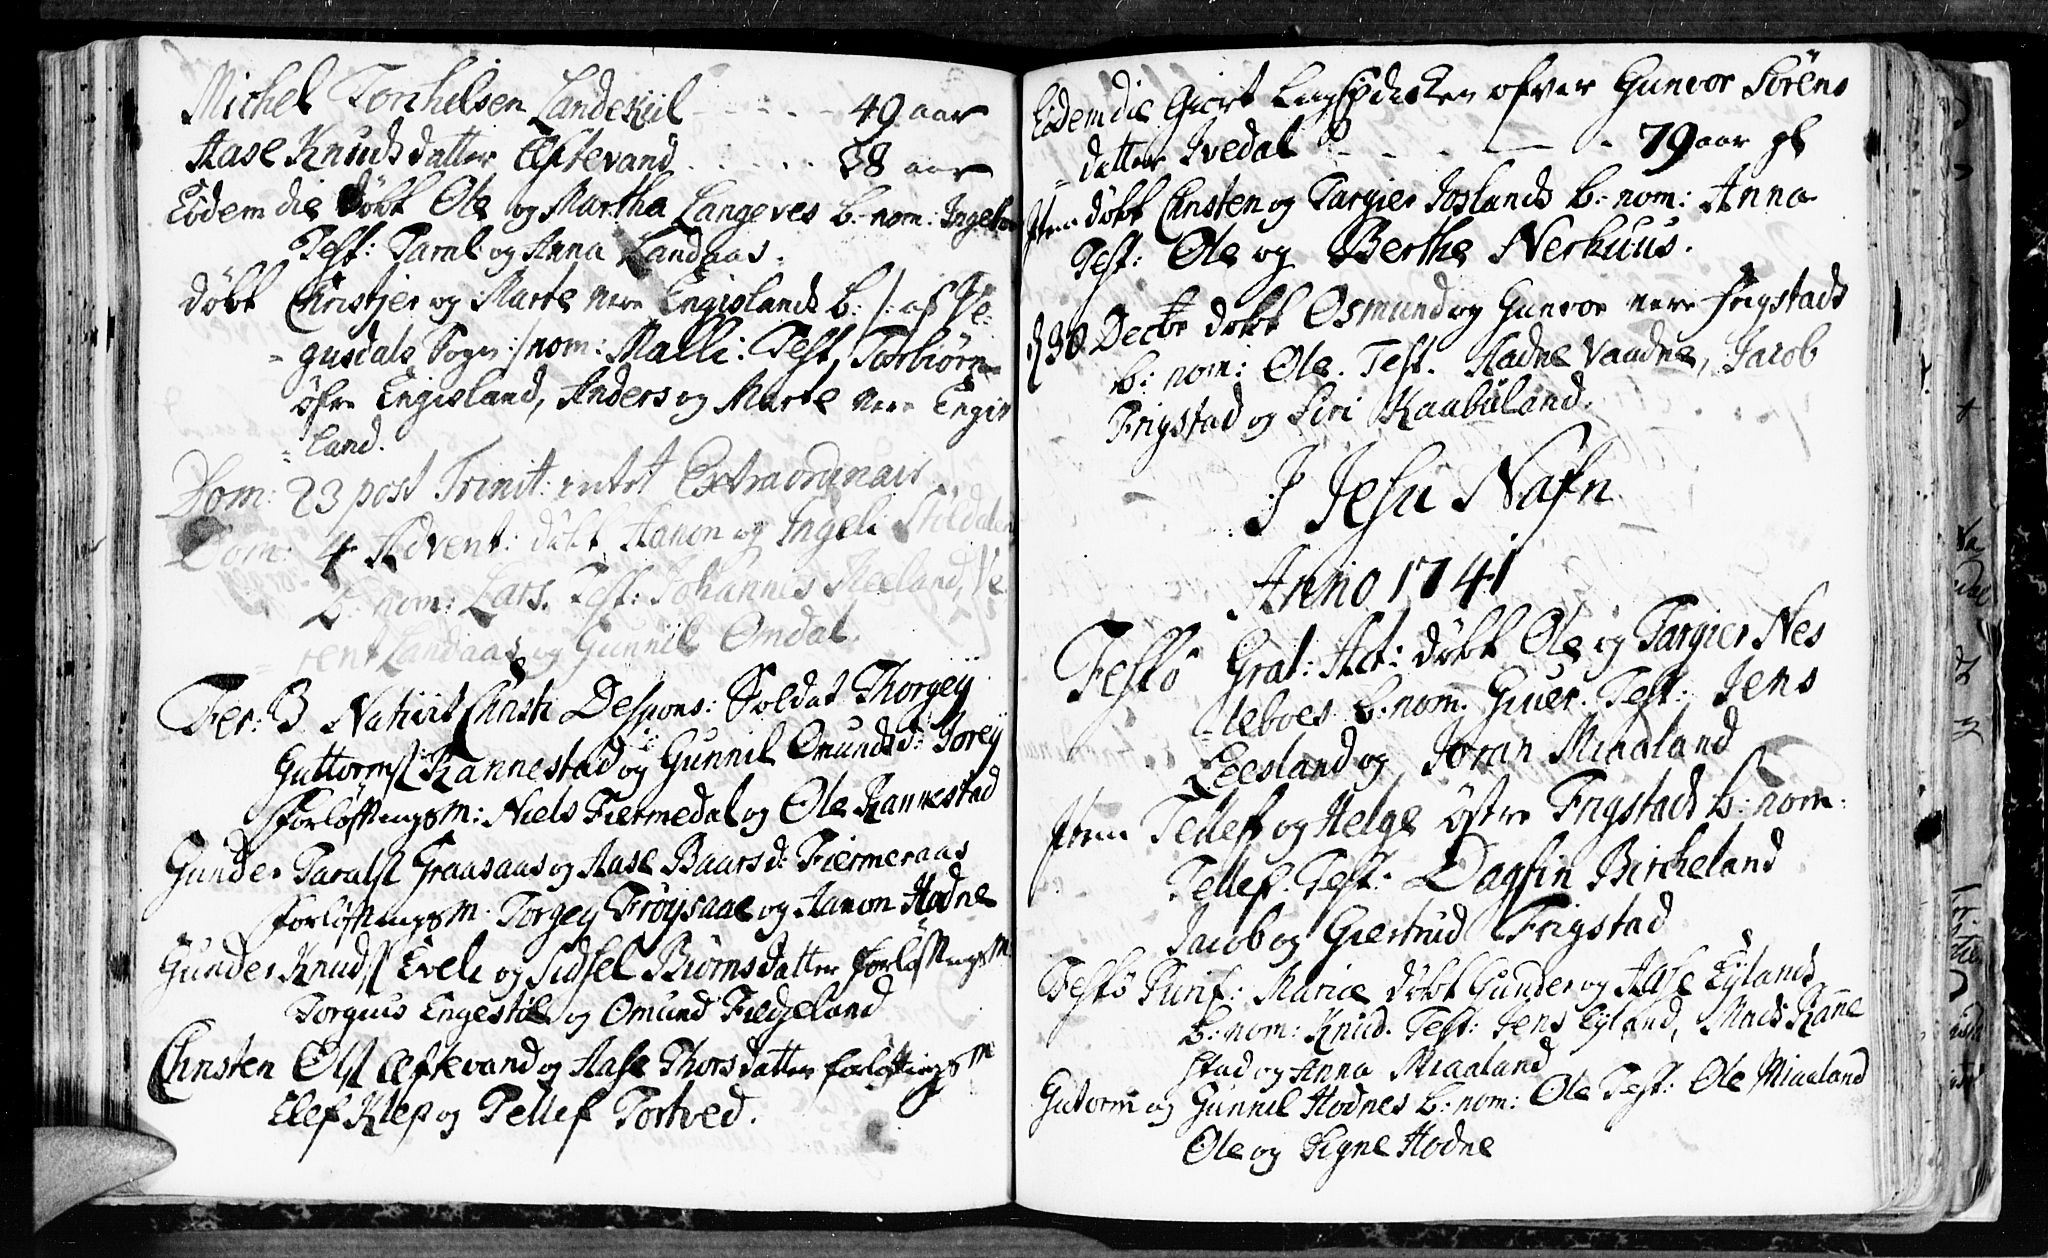 Michel Torchelsen Landekiil - - - - 49 aar
Aase Knuds datter Eftevand . . . . . 38 aar
Eodem die døbt Ole og Martha Langeves b: nom: Ingebor
Test: Taral og Anna Landaas.
døbt Christjer og Marte nere Engislands b: /: af Ve:
gusdals Sogn :/ nom: Malli: Test, Torbiørn
øfre Engisland, Anders og Marte nere Engis
land.
Dom: 23 post Trinit: intet Extraordinair
Dom: 4 Advent: døbt Aanon og Ingeli
b: nom: Lars. Test: Johannes Reeland, Ve
rent Landaas og Gunnil Omdal.
Fer: 3 Nativit Christi Despons: Soldat Thorgey
Guttorms: Kannestad og Gunnil Omundsd: Torey
Forløftningsm: Niels Fiermedal og Ole Kannestad
Gunder Taralss Graasaas og Aase Baarsd: Fiermeraas
Forløftningsm. Torgey Frøysaae og Aanon Hodne
Gunder Knuds Evele og Sidsel Biørnsdatter Forløftningsm.
Torgius Engestøl og Omund Fiedjeland
Christen Ols: Eftevand og Aase Thorsdatter forløftningsm
Elef Klep og Tellef Tortved.
Eodem die Giort Liigprediken ofver Gunvor Sørens
datter Ivedal - - - 79 aar gl
Item døbt Christen og Targier Joslands b: nom: Anna
Test: Ole og Berthe Nerhuus.
d 30 Decbr døbt Osmund og Gunvor nere Frigstads
b: nom: Ole. Test. Aadne Vaadne, Jacob
Frigstad og Siri Kaabuland.
I Jesu Nafn
Anno 1741
Festo Grat: Act: døbt Ole og Targier Nes
leboes b: nom. Giuer. Test: Jens
Eeesland og Joran Miaaland
Item Tellef og Helge østre Frigstads b: nom:
Tellef. Test: Dagfin Bircheland
Jacob og Giertrud Frigstad
Festo Purif: Mariæ døbt Gunder og Aase Eylands
b: nom: Knud. Test: Jens Eyland, Mads Kane
stad og Anna Miaaland
Gutorm og Gunnil Hodnes b: nom: Ole Test: Ole Miaaland
Ole og Signe Hodne